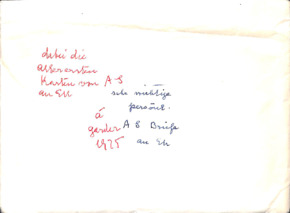 dabei die
allerersten
Karten von A S
an EH
sehr wichtige
persönl.
à
garder
1925
A S Briefe
an EH